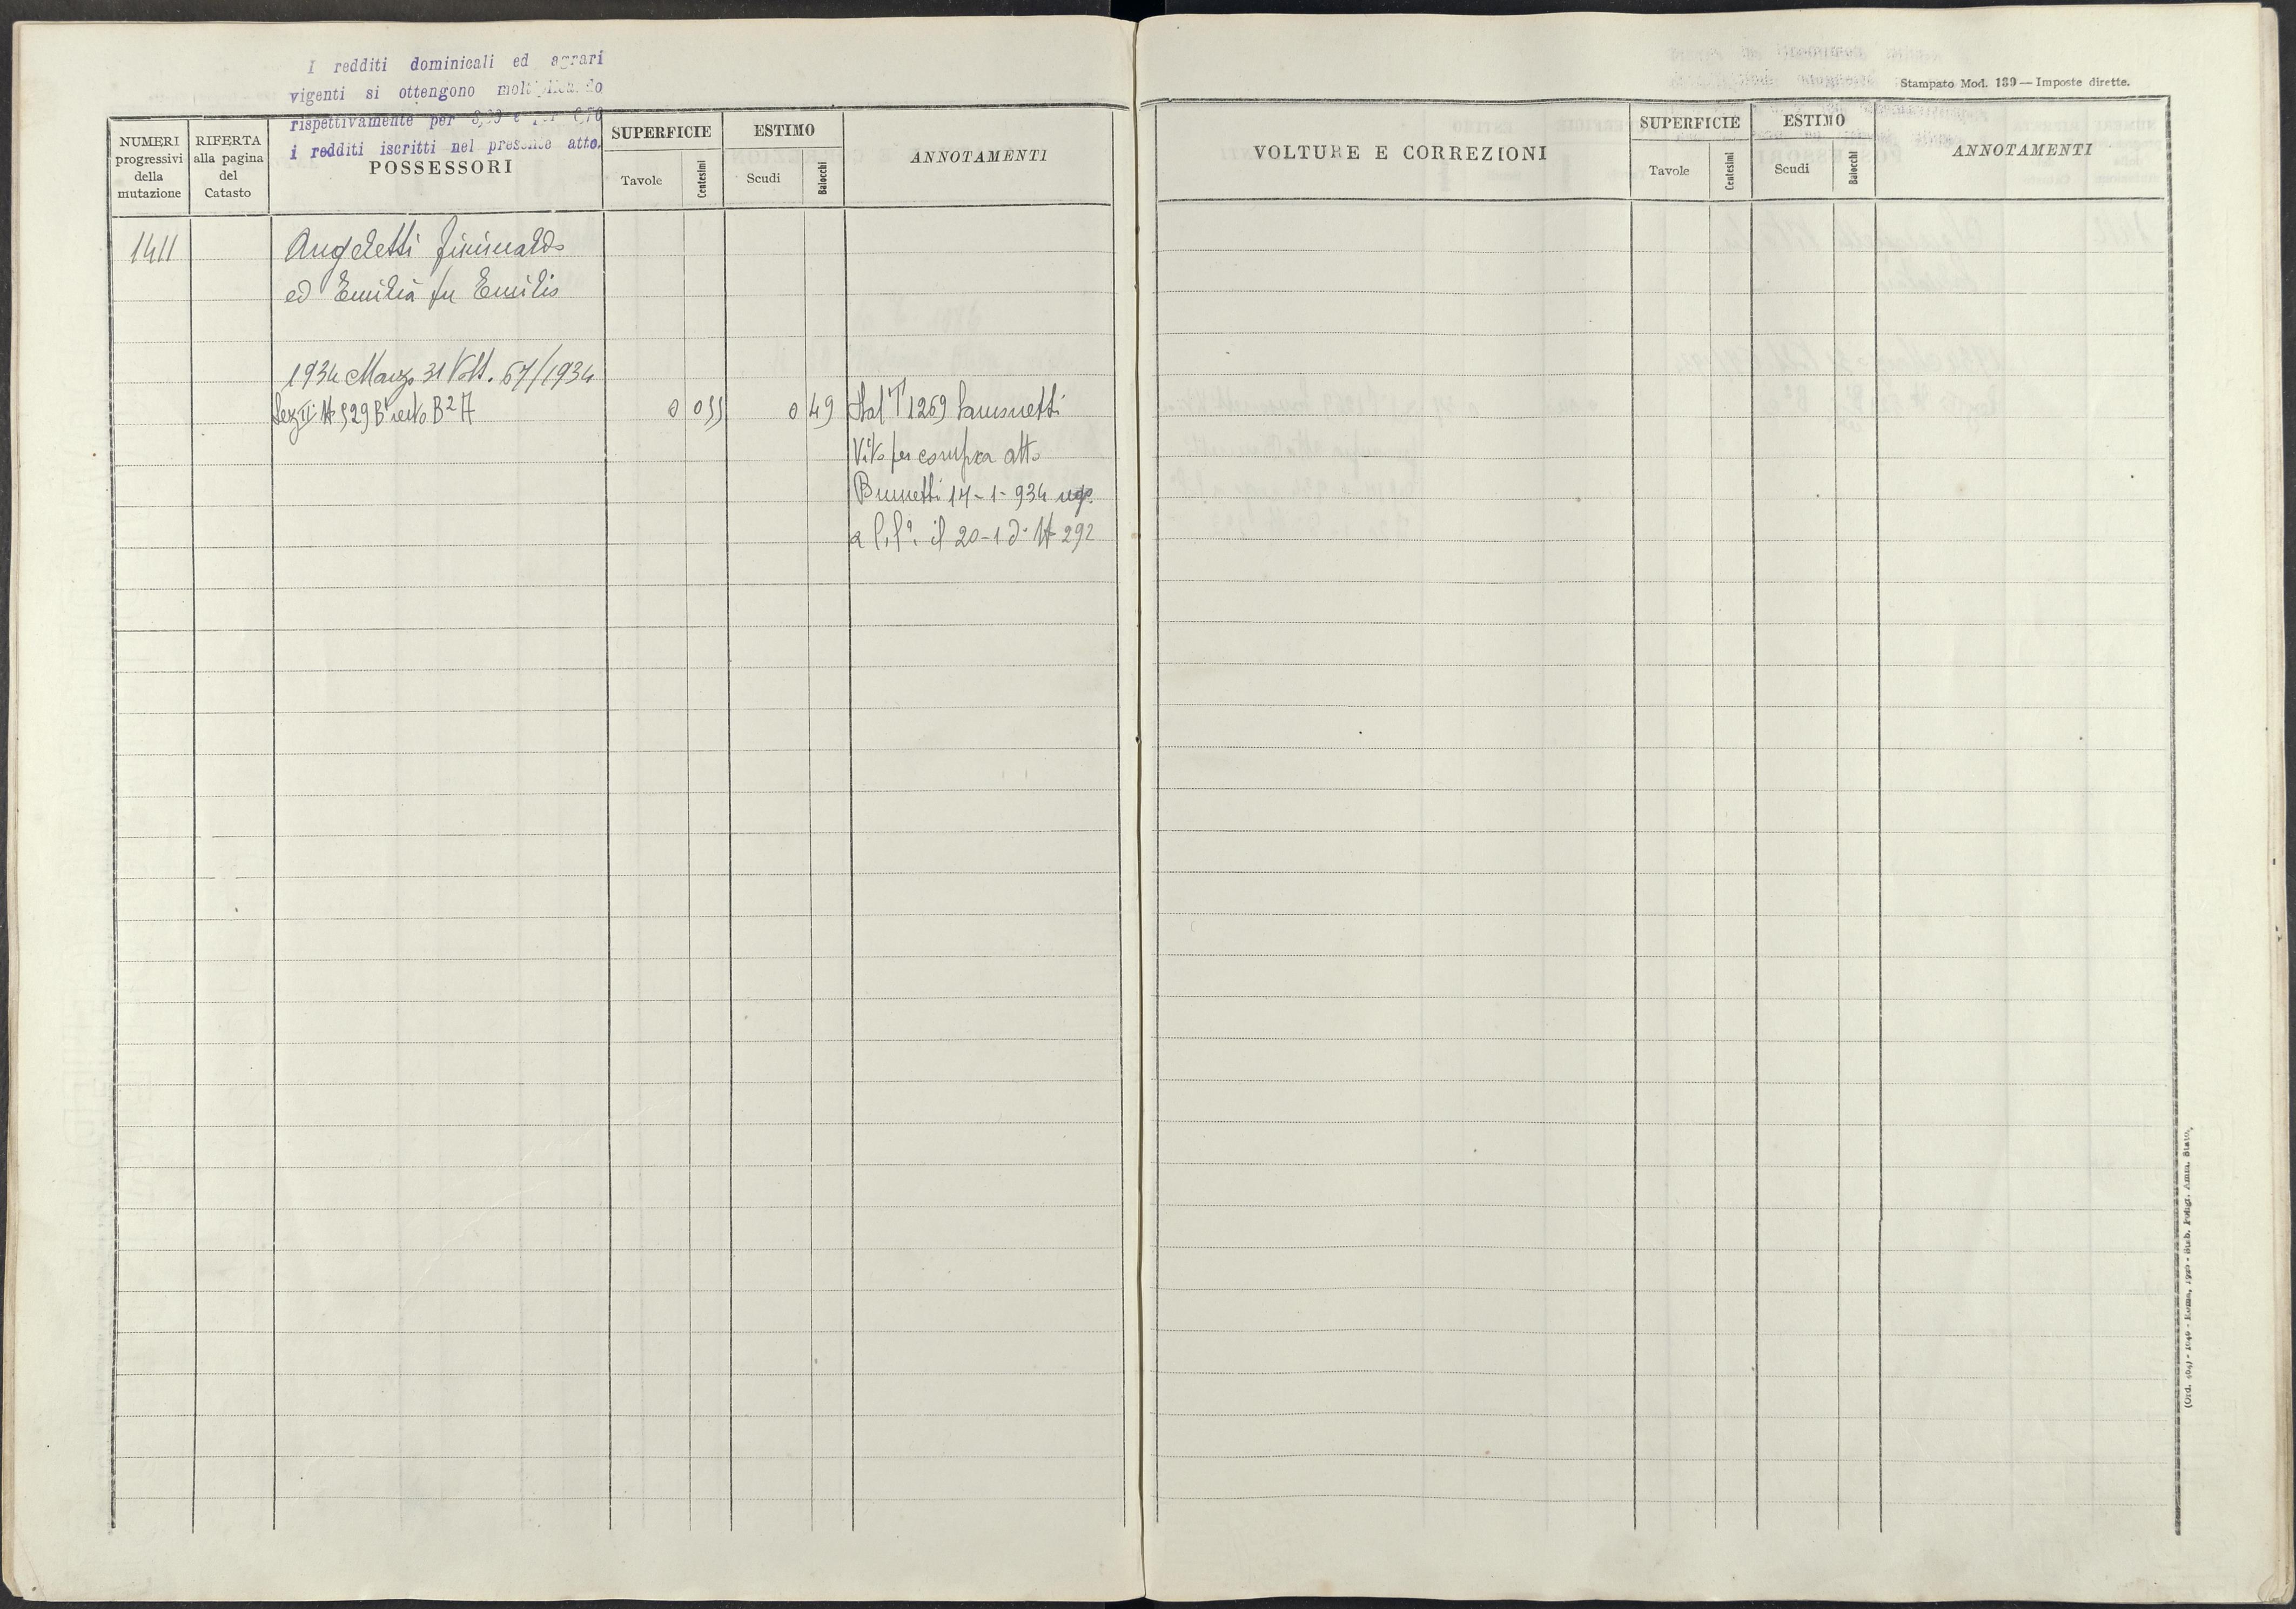 I redditi dominicali ed agrari
vigenti si ottengono moltiplicando
rispettivamente per
i redditi iscritti nel presente atto.
NUMERI
progressivi
della
mutazione
RIFERTA
alla pagina
del
Catasto
POSSESSORI
SUPERFICIE
Tavole
Centesimi
ESTIMO
Scudi
Baiocchi
ANNOTAMENTI
1411
Angeletti
ed Emilia fu Emilio
1934 Marzo 31 Volt. 67/1934
Sez II N 529 B B2 A
0 055 0 49 Dal T 1269
Vito per compra atto
Brunetti 17-1-934 reg.
a il 20-1 d. N 292
Stampato Mod. 139 — Imposte dirette.
VOLTURE E CORREZIONI
SUPERFICIE
Tavole
Centesimi
ESTIMO
Scudi
Baiocchi
ANNOTAMENTI
Roma, Stab. Poligr. Amm. Stato.